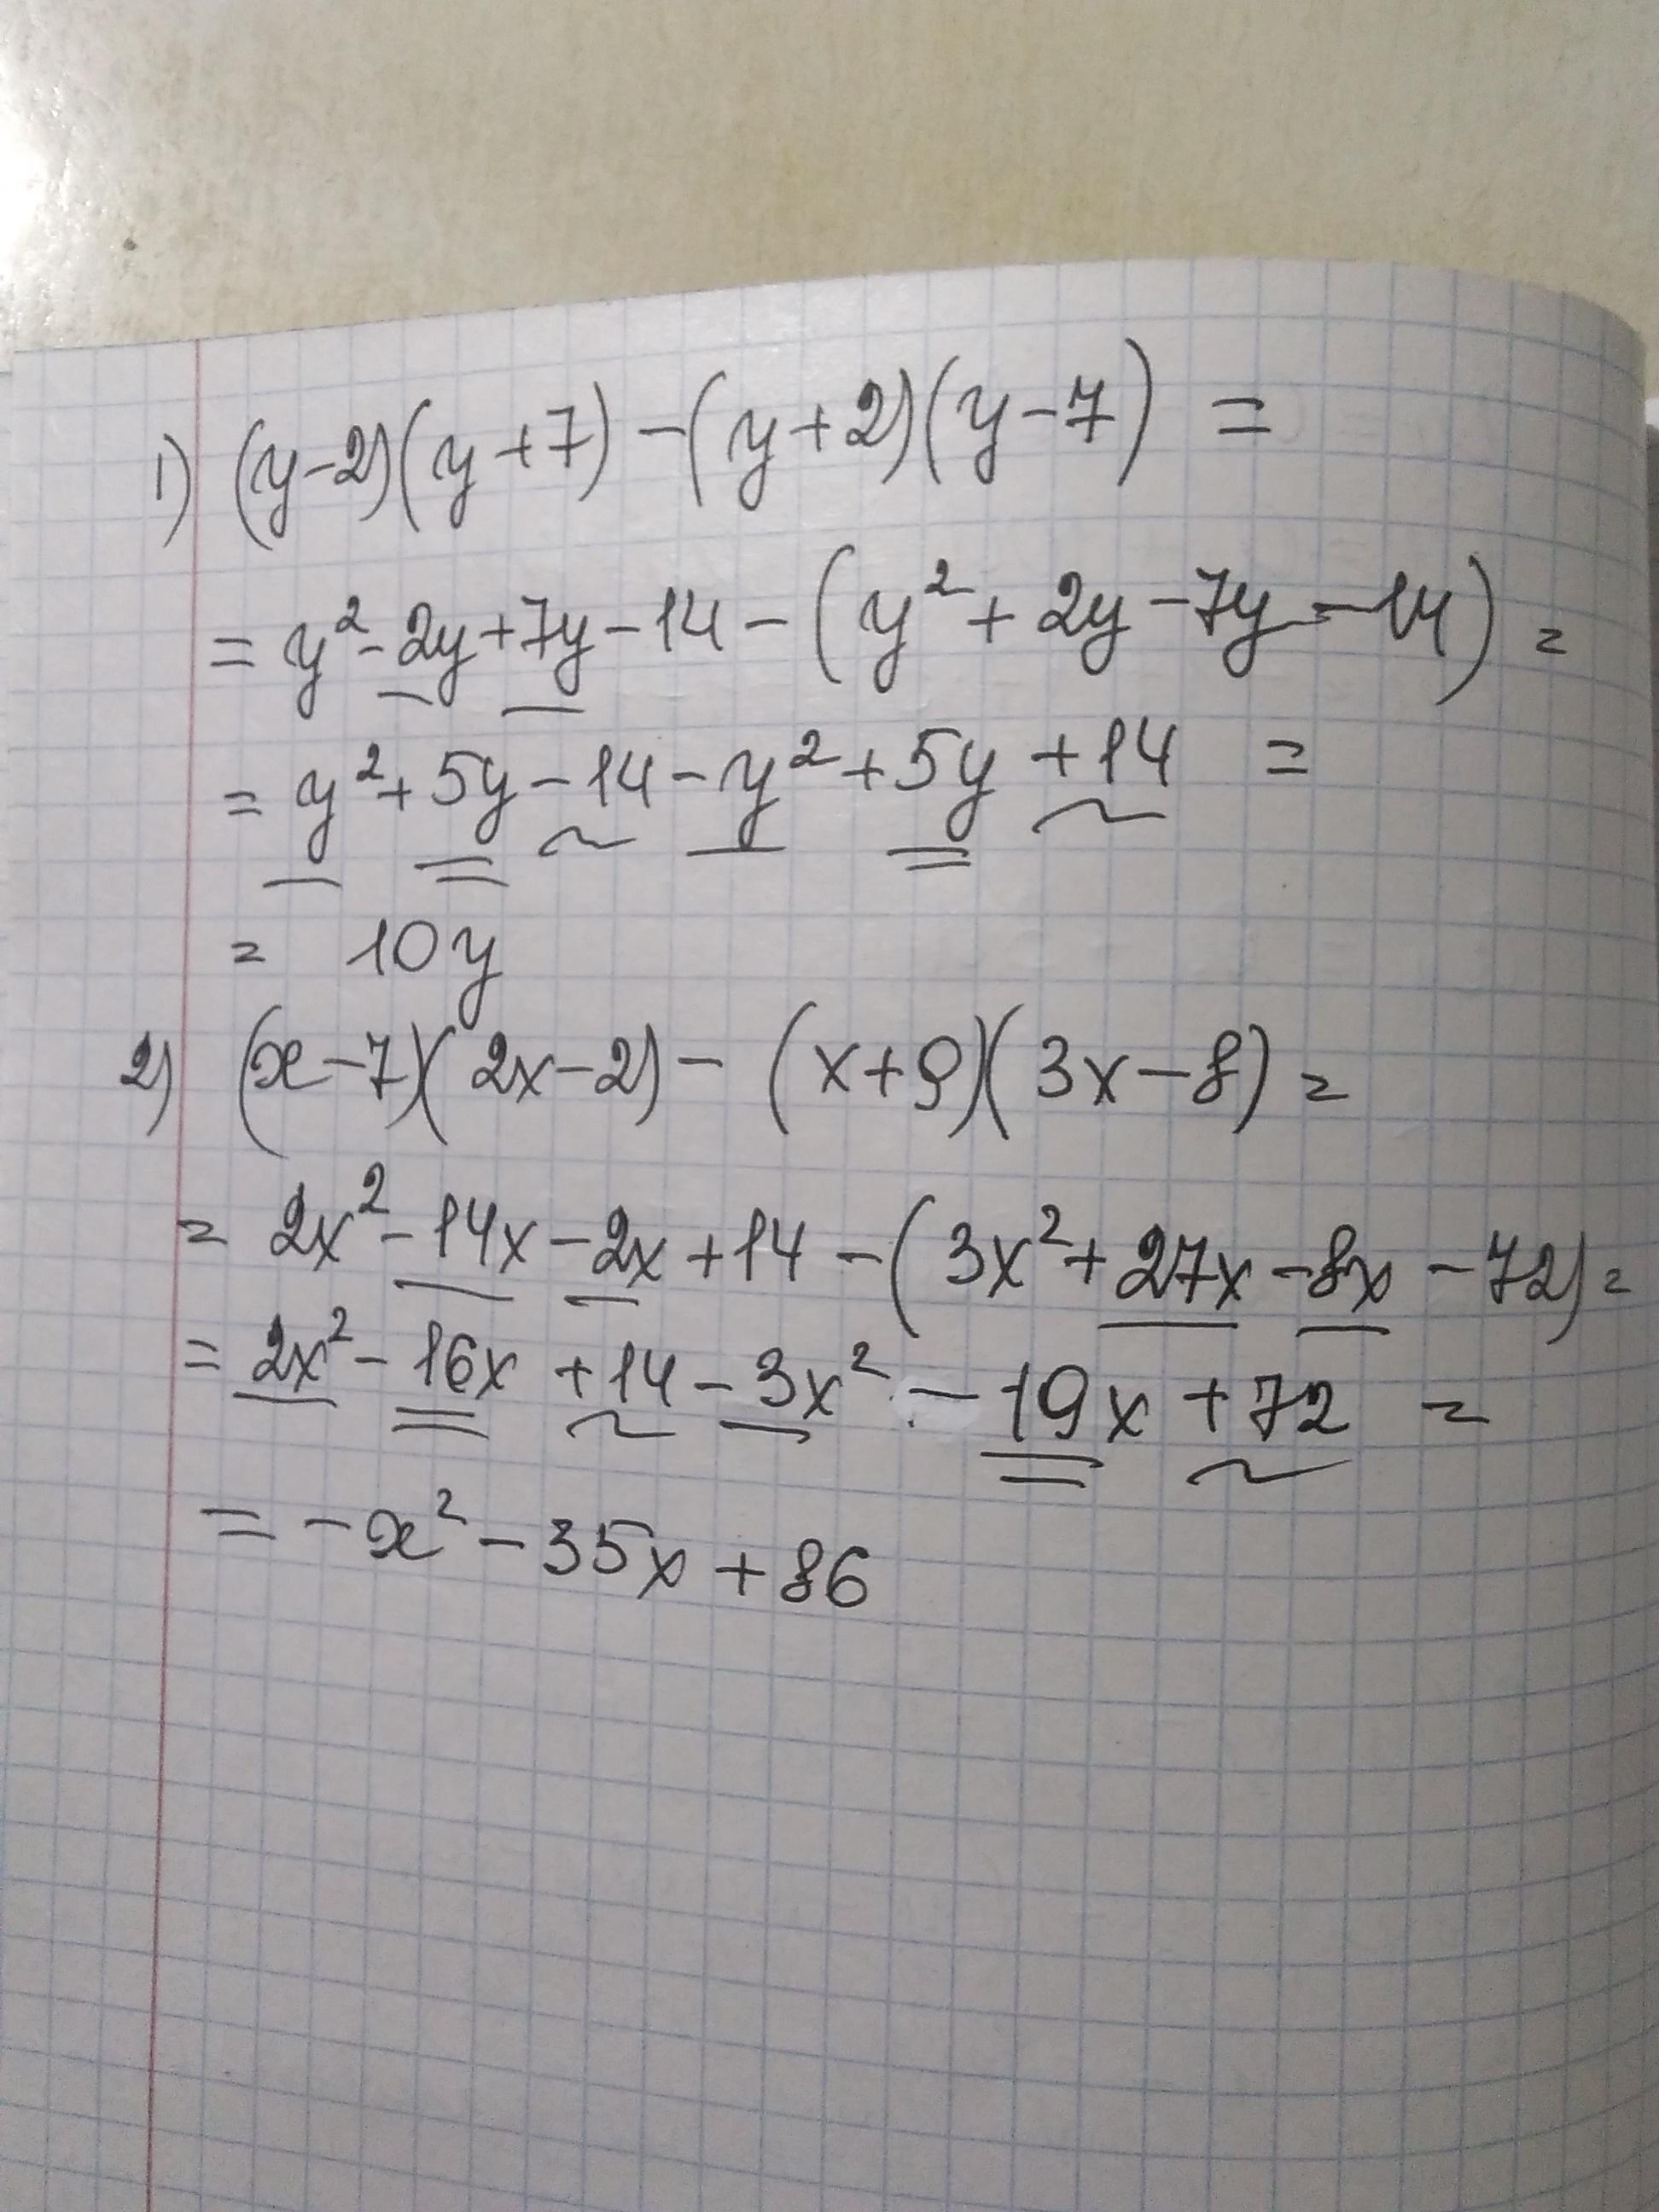 1) (y-2)(y+7)-(y+2)(y-7) =
= y²-2y+7y-14-(y²+2y-7y-14) =
= y²+5y-14-y²+5y+14 =
= 10y
2) (x-7)(2x-2)-(x+9)(3x-8) =
= 2x²-14x-2x+14-(3x²+27x-8x-72) =
= 2x²-16x+14-3x²-19x+72 =
= -x²-35x+86